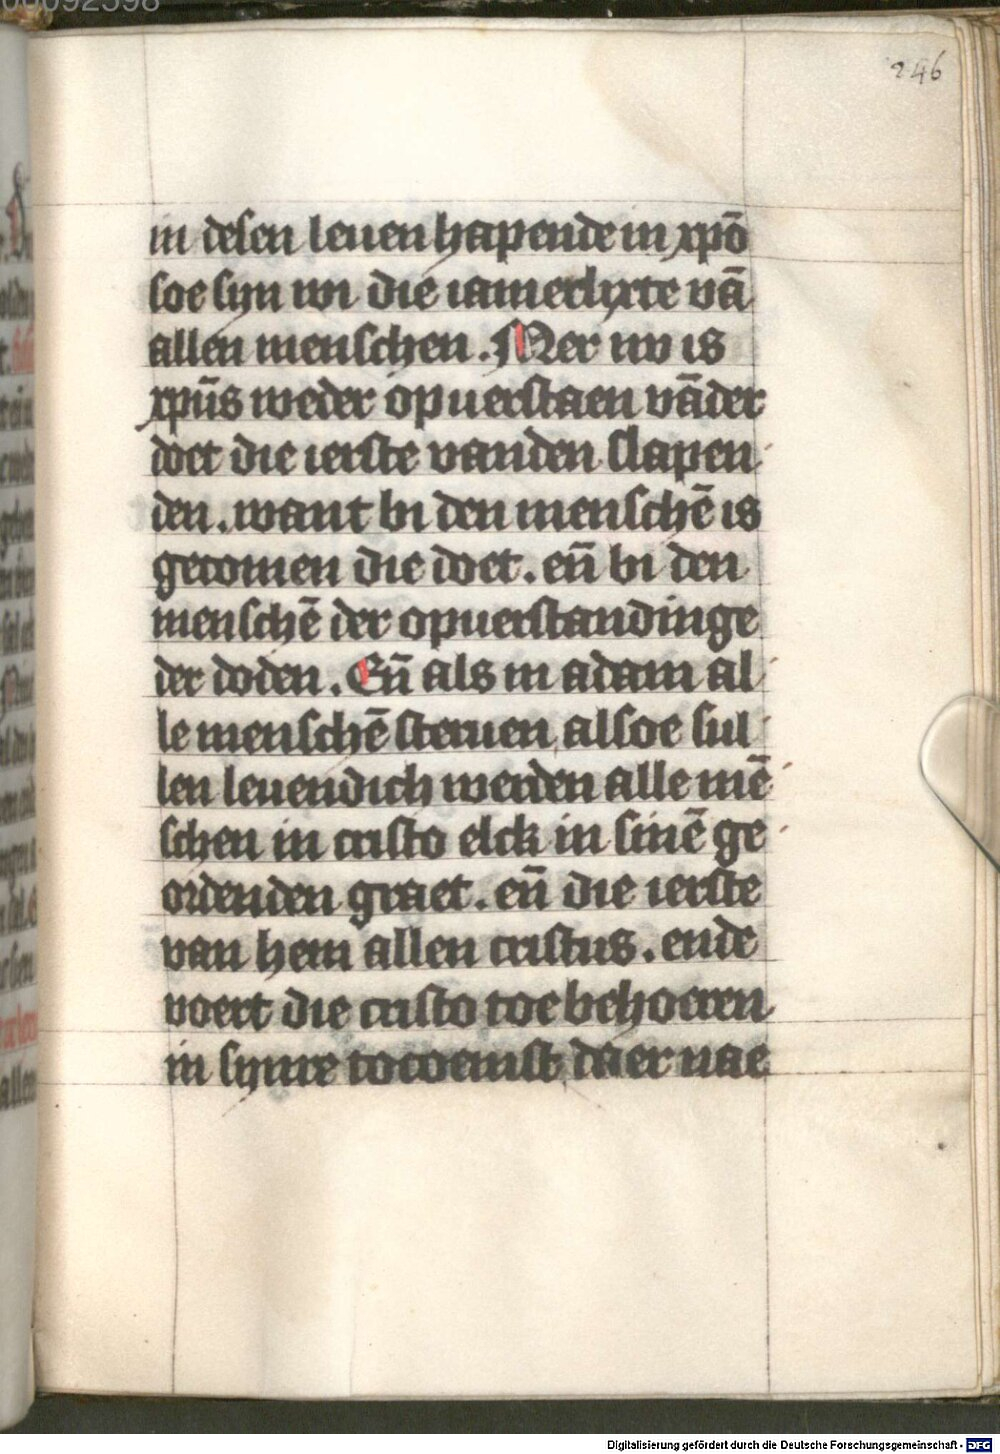 00092598
246
in desen leuen hapende in xpō
soe syn wi die iamerlyxte vā
allen menschen. Mer nv is
xpūs weder op uerstaen vāder
doet die ierste vanden slapen
den. want bi den menschē is
gecomen die doet. eñ bi den
menschē der opuerstandinge
der doden. Eñ als in adam al
le menschē steruen alsoe sul
len leuendich werden alle mē
schen in cristo elck in sinē ge
ordenden graet. eñ die ierste
van hem allen cristus. ende
voert die cristo toe behoeren
in synre tocoemst daer nae
Digitalisierung gefördert durch die Deutsche Forschungsgemeinschaft - DFG